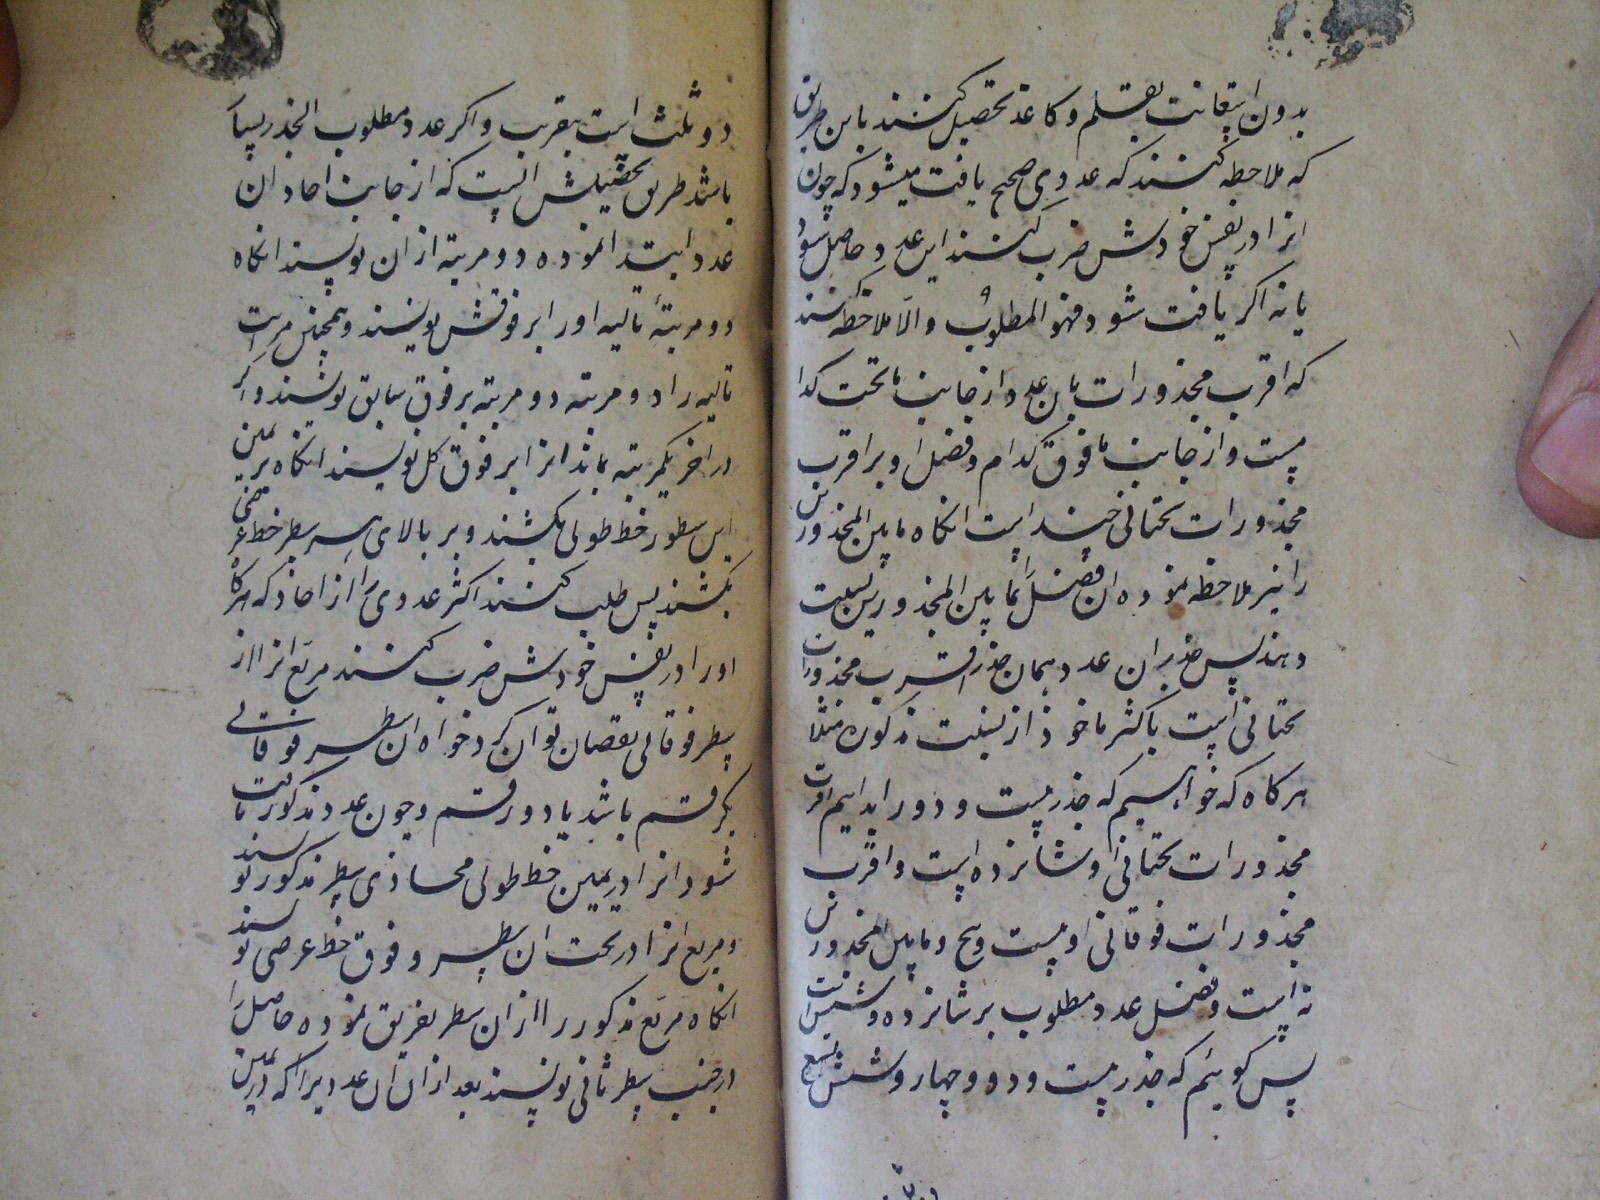 بدون استعانت بقلم و کاغذ تحصیل کنند باین طریق
که ملاحظه کنند که عددی صحیح یافت میشود که چون
انرا در نفس خودش ضرب کنند این عدد حاصل شود
یا نه اکر یافت شود فهو المطلوب والا ملاحظه کنند
که اقرب مجذورات بان عدد از جانب ما تحت کدا
مست و از جانب ما فوق کدام و فضل او بر اقرب
مجذورات تحتانی چند است انکاه ما بین المجذورین
را نیز ملاحظه نموده ان فضل را بما بین المجذورین نسبت
دهند پس جذر ان عدد همان جذر اقرب مجذورات
تحتانی است با کسر ماخوذ از نسبت مذکوره مثلا
هرکاه که خواهیم که جذر بیست و دو را بدانیم اقرب
مجذورات تحتانی او شانزده است و اقرب
مجذورات فوقانی او بیست و پنج و ما بین المجذورین
نه است و فضل عدد مطلوب بر شانزده شش است
پس کوییم که جذر بیست و دو چهار و شش تسع
دو ثلث است بتقریب و اکر عدد مطلوب الجذر بسیار
باشد طریق تحصیلش انست که از جانب احاد ان
عدد ابتدا نموده دو مرتبه از ان نویسند انکاه
دو مرتبهٔ تالیه او را بر فوقش نویسند و همچنین مراتب
تالیه را دو مرتبه دو مرتبه بر فوق سابق نویسند و اکر
در اخر یکمرتبه بماند انرا بر فوق کل نویسند انکاه بر یمین
این سطور خط طولی بکشند و بر بالای سر سطر خط عرضی
بکشند پس طلب کنند اکثر عددی را از احاد که هرکاه
او را در نفس خودش ضرب کنند مربع انرا از
سطر فوقانی نقصان توان کرد خواه ان سطر فوقانی
یکرقم باشد یا دو رقم و چون عدد مذکور یافت
شود انرا در یمین خط طولی محاذی سطر مذکور نویسند
و مربع انرا در تحت ان سطر و فوق خط عرضی نویسند
انکاه مربع مذکور را از ان سطر تفریق نموده حاصل را
در جنب سطر ثانی نویسند بعد از ان ان عددیرا که در یمین